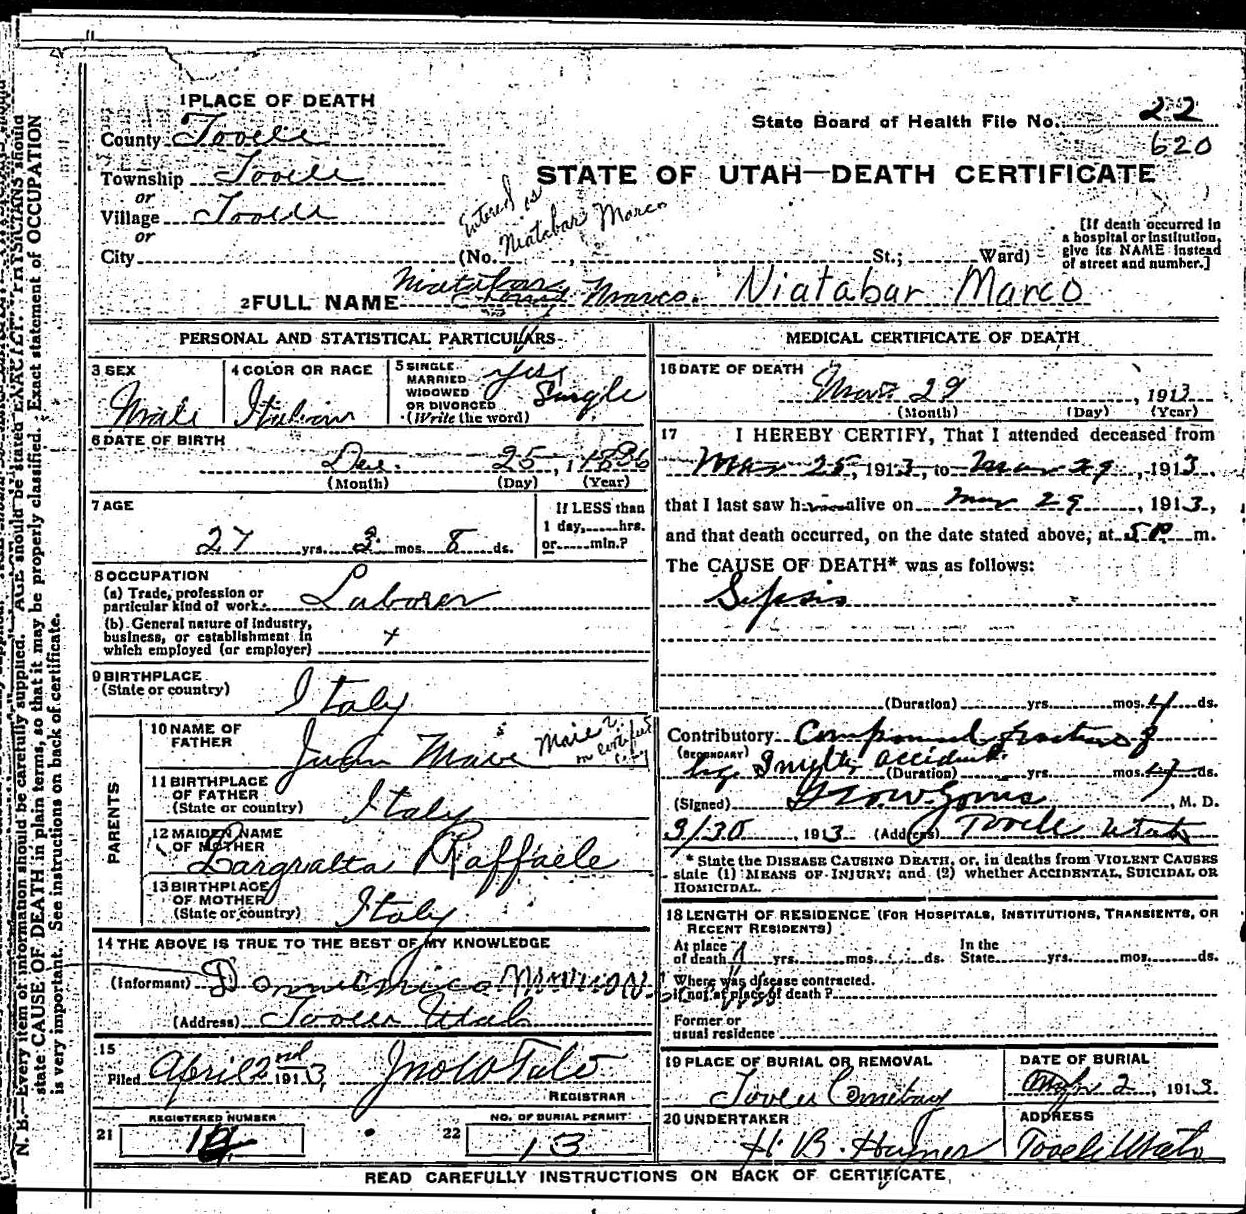 1 PLACE OF DEATH
County Tooele
State Board of Health File No. 22
620
Township Tooele
or
Village Tooele
or
City
STATE OF UTAH—DEATH CERTIFICATE
Entered as
Niatabar Marco
(No. , St.; Ward)
[If death occurred in a hospital or institution, give its NAME instead of street and number.]
2 FULL NAME Niatabar Marco. Niatabar Marco
PERSONAL AND STATISTICAL PARTICULARS
3 SEX
Male
4 COLOR OR RACE
Italian
5 SINGLE
MARRIED
WIDOWED
OR DIVORCED
(Write the word)
yes
Single
6 DATE OF BIRTH
Dec. 25, 1886
(Month) (Day) (Year)
7 AGE
27 yrs. 3 mos. 8 ds.
If LESS than
1 day, hrs.
or min.?
8 OCCUPATION
(a) Trade, profession or
particular kind of work Laborer
(b) General nature of industry,
business, or establishment in
which employed (or employer)
9 BIRTHPLACE
(State or country) Italy
PARENTS
10 NAME OF
FATHER
11 BIRTHPLACE
OF FATHER
(State or country) Italy
12 MAIDEN NAME
OF MOTHER Raffaele
13 BIRTHPLACE
OF MOTHER
(State or country) Italy
14 THE ABOVE IS TRUE TO THE BEST OF MY KNOWLEDGE
(Informant)
(Address) Tooele Utah
15
Filed April 2nd 1913,
REGISTRAR
REGISTERED NUMBER
21
NO. OF BURIAL PERMIT
22 13
MEDICAL CERTIFICATE OF DEATH
16 DATE OF DEATH
Mar. 29, 1913
(Month) (Day) (Year)
17 I HEREBY CERTIFY, That I attended deceased from
Mar 25, 1913, to Mar 29, 1913,
that I last saw h alive on Mar 29, 1913,
and that death occurred, on the date stated above, at 5 P. m.
The CAUSE OF DEATH* was as follows:
Sepsis
(Duration) yrs. mos. 4 ds.
Contributory Compound fracture of
(SECONDARY)
leg Smelter accident.
(Duration) yrs. mos. ds.
(Signed) , M. D.
3/30, 1913 (Address) Tooele Utah
* State the DISEASE CAUSING DEATH, or, in deaths from VIOLENT CAUSES
state (1) MEANS OF INJURY; and (2) whether ACCIDENTAL, SUICIDAL OR
HOMICIDAL.
18 LENGTH OF RESIDENCE (FOR HOSPITALS, INSTITUTIONS, TRANSIENTS, OR
RECENT RESIDENTS)
At place
of death 1 yrs. mos. ds.
In the
State yrs. mos. ds.
Where was disease contracted,
if not at place of death?
Former or
usual residence
19 PLACE OF BURIAL OR REMOVAL
Tooele Cemetary
DATE OF BURIAL
2, 1913
20 UNDERTAKER
H. B.
ADDRESS
Tooele Utah
READ CAREFULLY INSTRUCTIONS ON BACK OF CERTIFICATE
N. B.—Every item of information should be carefully supplied. AGE should be stated EXACTLY. PHYSICIANS should
state CAUSE OF DEATH in plain terms, so that it may be properly classified. Exact statement of OCCUPATION
is very important. See instructions on back of certificate.